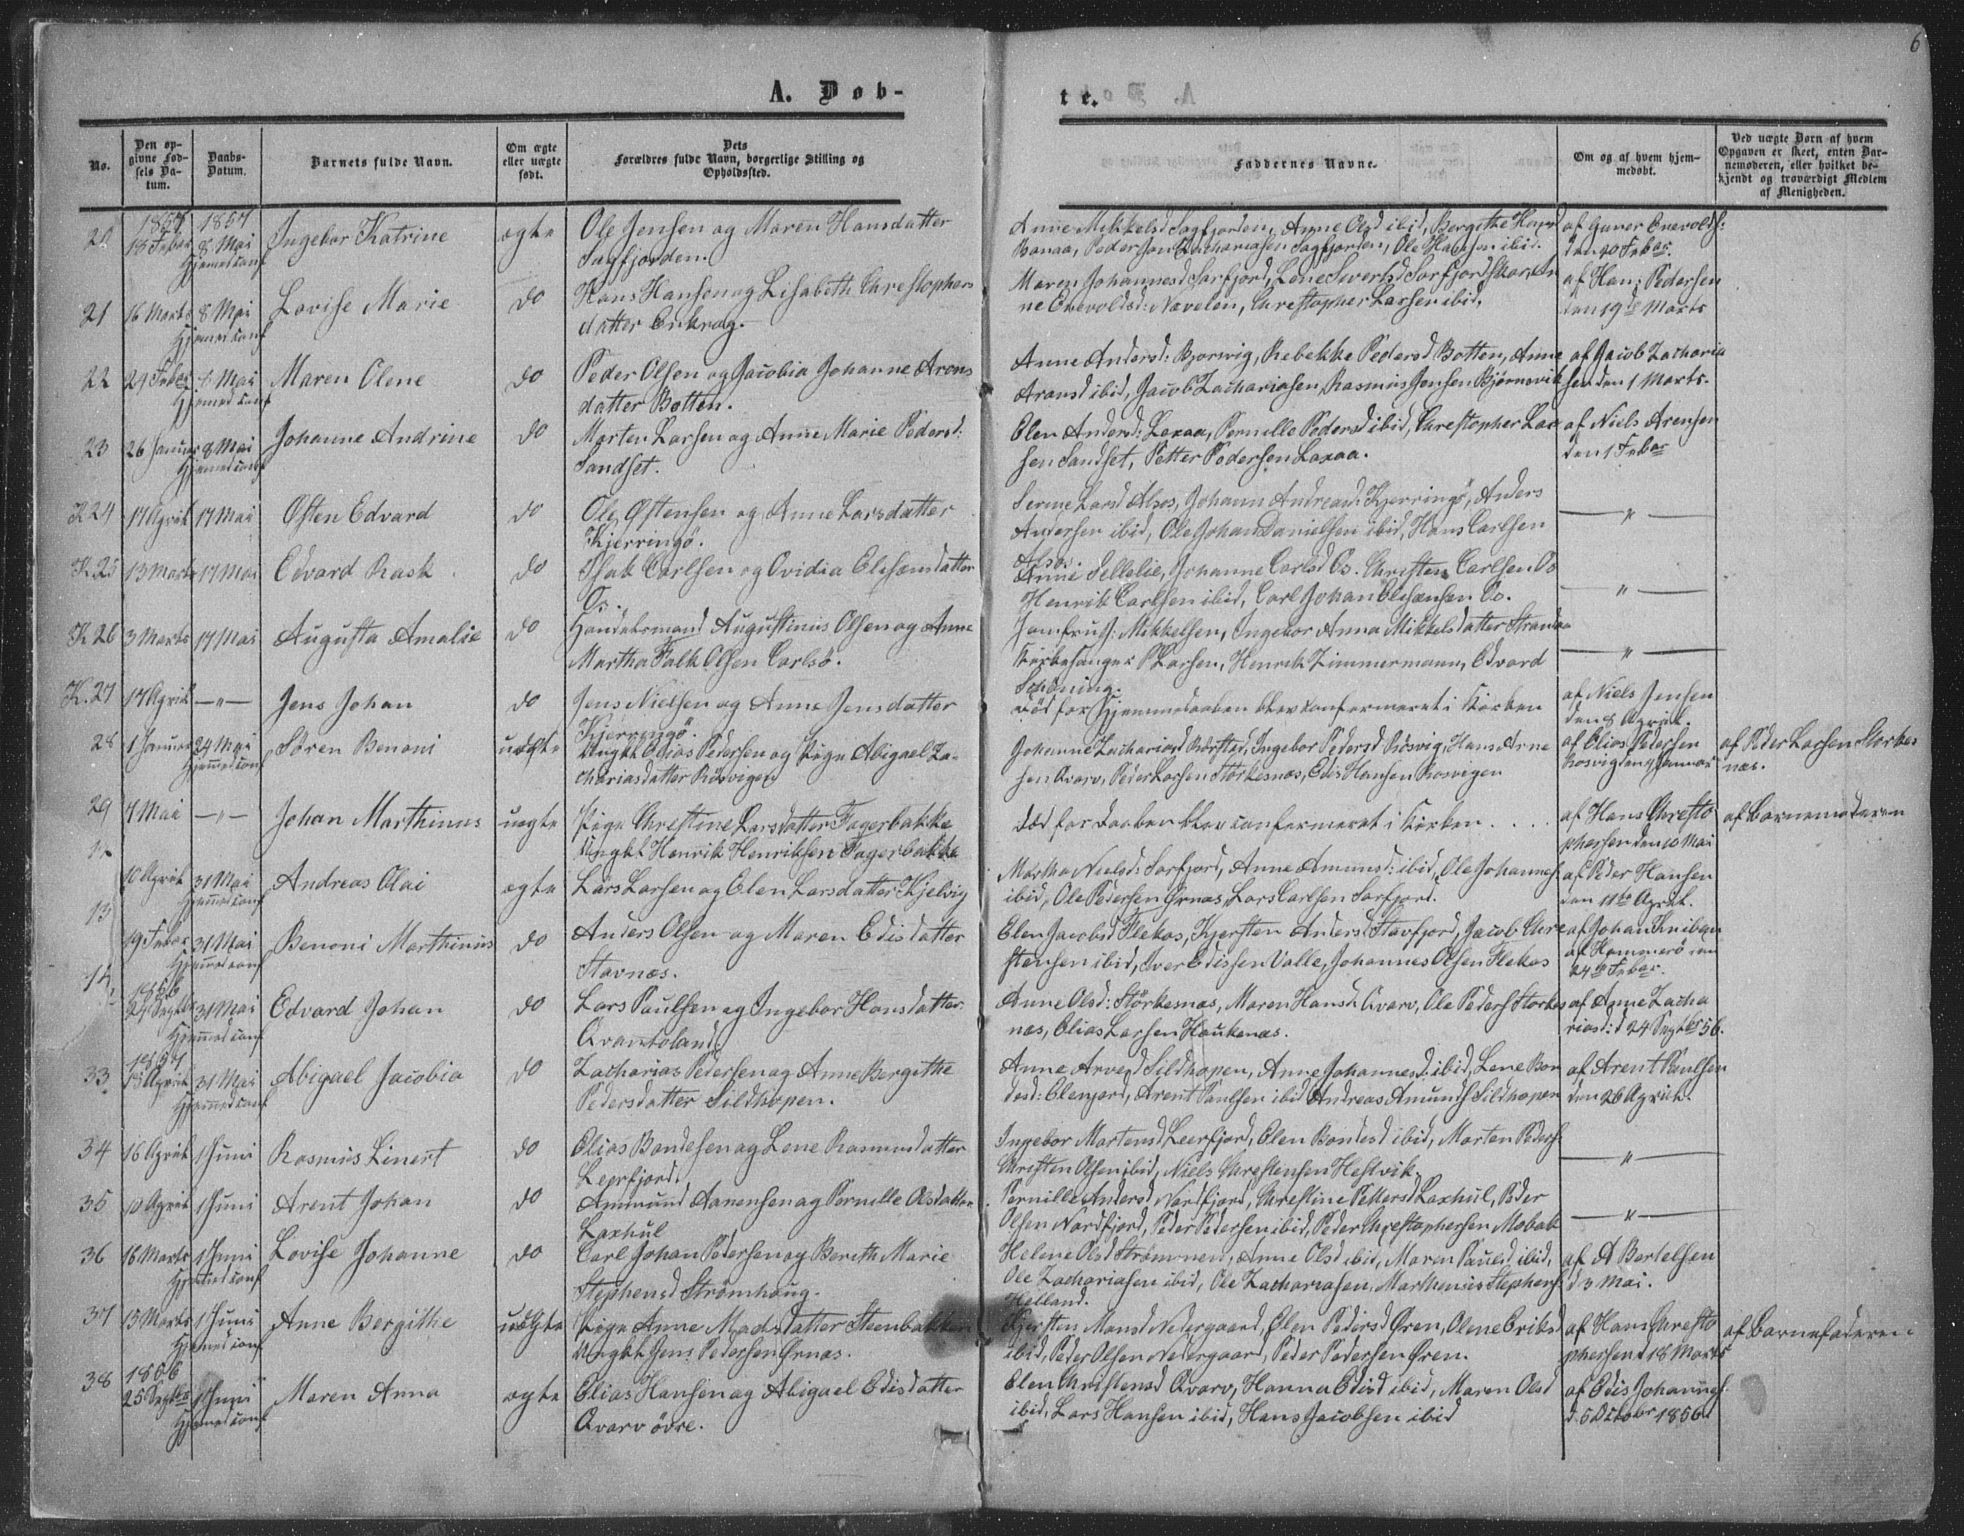 6
A. Døb-
te.
No.
Den op-
givne Fød-
sels Da-
tum.
Daabs-
Datum.
Barnets fulde Navn.
Om ægte
eller uægte
født.
Dets
Forældres fulde Navn, borgerlige Stilling og
Opholdssted.
Faddernes Navne.
Om og af hvem hjem-
medøbt.
Ved uægte Børn af hvem
Opgaven er skeet, enten Bar-
nemoderen, eller hvilket be-
kjendt og troværdigt Medlem
af Menigheden.
1857 1857
20 18 Febar 8 Mai Ingebor Katrine ægte Ole Jensen og Maren Hansdatter
Hjemed conf Sagfjorden.
Anne Mikkelsd Sagfjorden, Anne Olsd ibid, Bergithe Hansd
Bonaa, Peder Jan Zachariasen Sagfjorden, Ole Hansen ibid.
af Gaver Enevolds:
den 20 Febar.
21 16 Marts 8 Mai Lovise Marie do Hans Hansen og Lisabeth Christophers
Hjemed conf datter Enkrog.
Maren Johannesd Sørfjord, Lene Sivertsd Sørfjordskar, An
ne Enevoldsd: Navelen, Christopher Larsen ibid.
af Han: Pedersen
den 19d Marts
22 24 Febar 8 Mai Maren Olene do Peder Olsen og Jacobia Johanne Arons
Hjemed conf datter Botten.
Anne Andersd: Bjorvig, Rebekke Pedersd Botten, Anne
Aronsd ibid, Jacob Zachariasen, Rasmus Jensen Bjørnsvik
af Jacob Zacharia
sen den 1 Marts.
23 26 Januar 8 Mai Johanne Andrine do Morten Larsen og Anne Marie Pedersd:
Hjemed conf Sandset.
Elen Andersd: Laxaa, Pernille Pedersd ibid, Christopher Lar
sen Sandset, Petter Pedersen Laxaa.
af Niels Arensen
den 1 Febar
K 24 17 April 17 Mai Østen Edvard do Ole Østensen og Anne Larsdatter
Kjerringø.
Serine Larsd Alsos, Johann Andreasd: Kjerringø, Anders
Andersen ibid, Ole Johan Danielsen ibid, Hans Carlsen
Alsos.
— " —
K 25 13 Marts 17 Mai Edvard Rask do Isak Carlsen og Ovidia Elesæusdatter
Os.
Anne Sellelie, Johanne Carlsd Os. Christen Carlsen Os
Henrik Carlsen ibid, Carl Johan Elesæusen Os.
— " —
K 26 3 Marts 17 Mai Augusta Amalie do Handelsmand Augustinus Olsen og Anne
Martha Falk Olsen Carlsø.
Jomfru J: Mikkelsen, Ingebor Anna Mikkelsdatter Strandaa
Kirkesanger P Larsen, Henrik Zimmermann, Edvard
Schøning.
— " —
K. 27 17 April — " — Jens Johan do Jens Nielsen og Anne Jensdatter
Kjerringø.
Død før Hjemmedaaben blev confirmeret i Kirken
af Niels Jensen
den 8 April.
28 1 Januar 24 Mai Søren Benoni uægte Ungkl Elias Pedersen og Pige Abigael Za-
Hjemmed conf chariasdatter Røsvigen
Johanne Zachariasd Rørsted, Ingebor Pedersd Røsvig, Hans Arne
sen Qvarv, Peder Larsen Størkesnæs, Edis Hansen Rosvigen
af Elias Pedersen
Rosvig den 9 Januar
af Peder Larsen Størkes
næs.
29 7 Mai — " — Johan Marthinus uægte Pige Christine Larsdatter Fagerbakke
Ungkl Henrik Henriksen Fagerbakke
død før Daaben blev confirmeret i Kirken . . . .
af Hans Christo
phersen den 10 Mai
af Barnemoderen
10 April 31 Mai Andreas Olai ægte Lars Larsen og Elen Larsdatter Kjelvig
Hjemmed conf
Martha Nielsd: Sørfjord, Anne Amunsd: ibid, Ole Johannes
ibid, Ole Pedersen Ørnæs, Lars Carlsen Sørfjord.
af Peder Hansen
den 11te April.
13
19 Febar 31 Mai Benoni Marthinus do Anders Olsen og Maren Edisdatter
Hjemmed conf Stavnæs.
Elen Jacobsd Flekas, Kjersten Andersd Stavfjord, Jacob Chri
stensen ibid, Iver Edissen Valle, Johannes Olsen Flekas
af Johan Kniben
af Hammerø den
24de Febar.
14
1856
24 Septbr 31 Mai Edvard Johan do Lars Paulsen og Ingebor Hansdatter
Hjemmed conf Qvantoland
Anne Olsd: Størkesnæs, Maren Hansd: Qvarv, Ole Peders Størkes
næs, Elias Larsen Haukenæs.
af Anne Zacha
riasd: d 24 Septbr 56.
1857
33 18 April 31 Mai Abigael Jacobia do Zacharias Pedersen og Anne Bergithe
Hjemmed conf Pedersdatter Sildhopen.
Anne Arvesd Sildhopen, Anne Johannesd: ibid, Lene Bon
desd: Elenjord, Arent Paulsen ibid Andreas Amunds Sildhopen
af Arent Paulsen
den 26 April.
34 16 April 1 Juni Rasmus Linert do Elias Bondesen og Lene Rasmusdatter
Leerfjord.
Ingebor Martensd Leerfjord, Elen Bondesd ibid, Morten Peders
Christen Olsen ibid, Niels Christensen Hestvik.
— " —
35 10 April 1 Juni Arent Johan do Ammund Aanensen og Pernille Olsdatter
Laxhul
Pernille Andersd Nordfjord, Christine Pettersd Laxhul, Peder
Olsen Nordfjord, Peder Pedersen ibid, Peder Christophersen Mobak
— " —
36 16 Marts 1 Juni Lovise Johanne do Carl Johan Pedersen og Bereth Marie
Hjemed conf Stephensd Strømhaug.
Helene Olsd Strømmen, Anne Olsd ibid, Maren Paulsd ibid,
Ole Zachariasen ibid, Ole Zachariasen, Marthenius Stephens
Helland.
af A Bertelsen
d 3 Mai.
37 13 Marts 1 Juni Anne Bergithe uægte Pige Anne Madsdatter Steenbakken
Hjemed conf Ungkl Jens Pedersen Ørnæs.
Kjersten Monsd Nedergaard, Elen Pedersd Øren, Olene Eriksd
ibid, Peder Olsen Nedergaard, Peder Pedersen Øren.
af Hans Christo
phersen d 18 Marts
af Barnefaderen
1856
38 25 Septbr 1 Juni Maren Anna ægte Elias Hansen og Abigael Edisdatter
Hjemed conf Qvarv øvre.
Elen Christensd Qvarv, Hanna Edisd ibid, Maren Olsd
ibid, Lars Hansen ibid, Hans Jacobsen ibid
af Edis Johannes
d 5 Octobr 1856